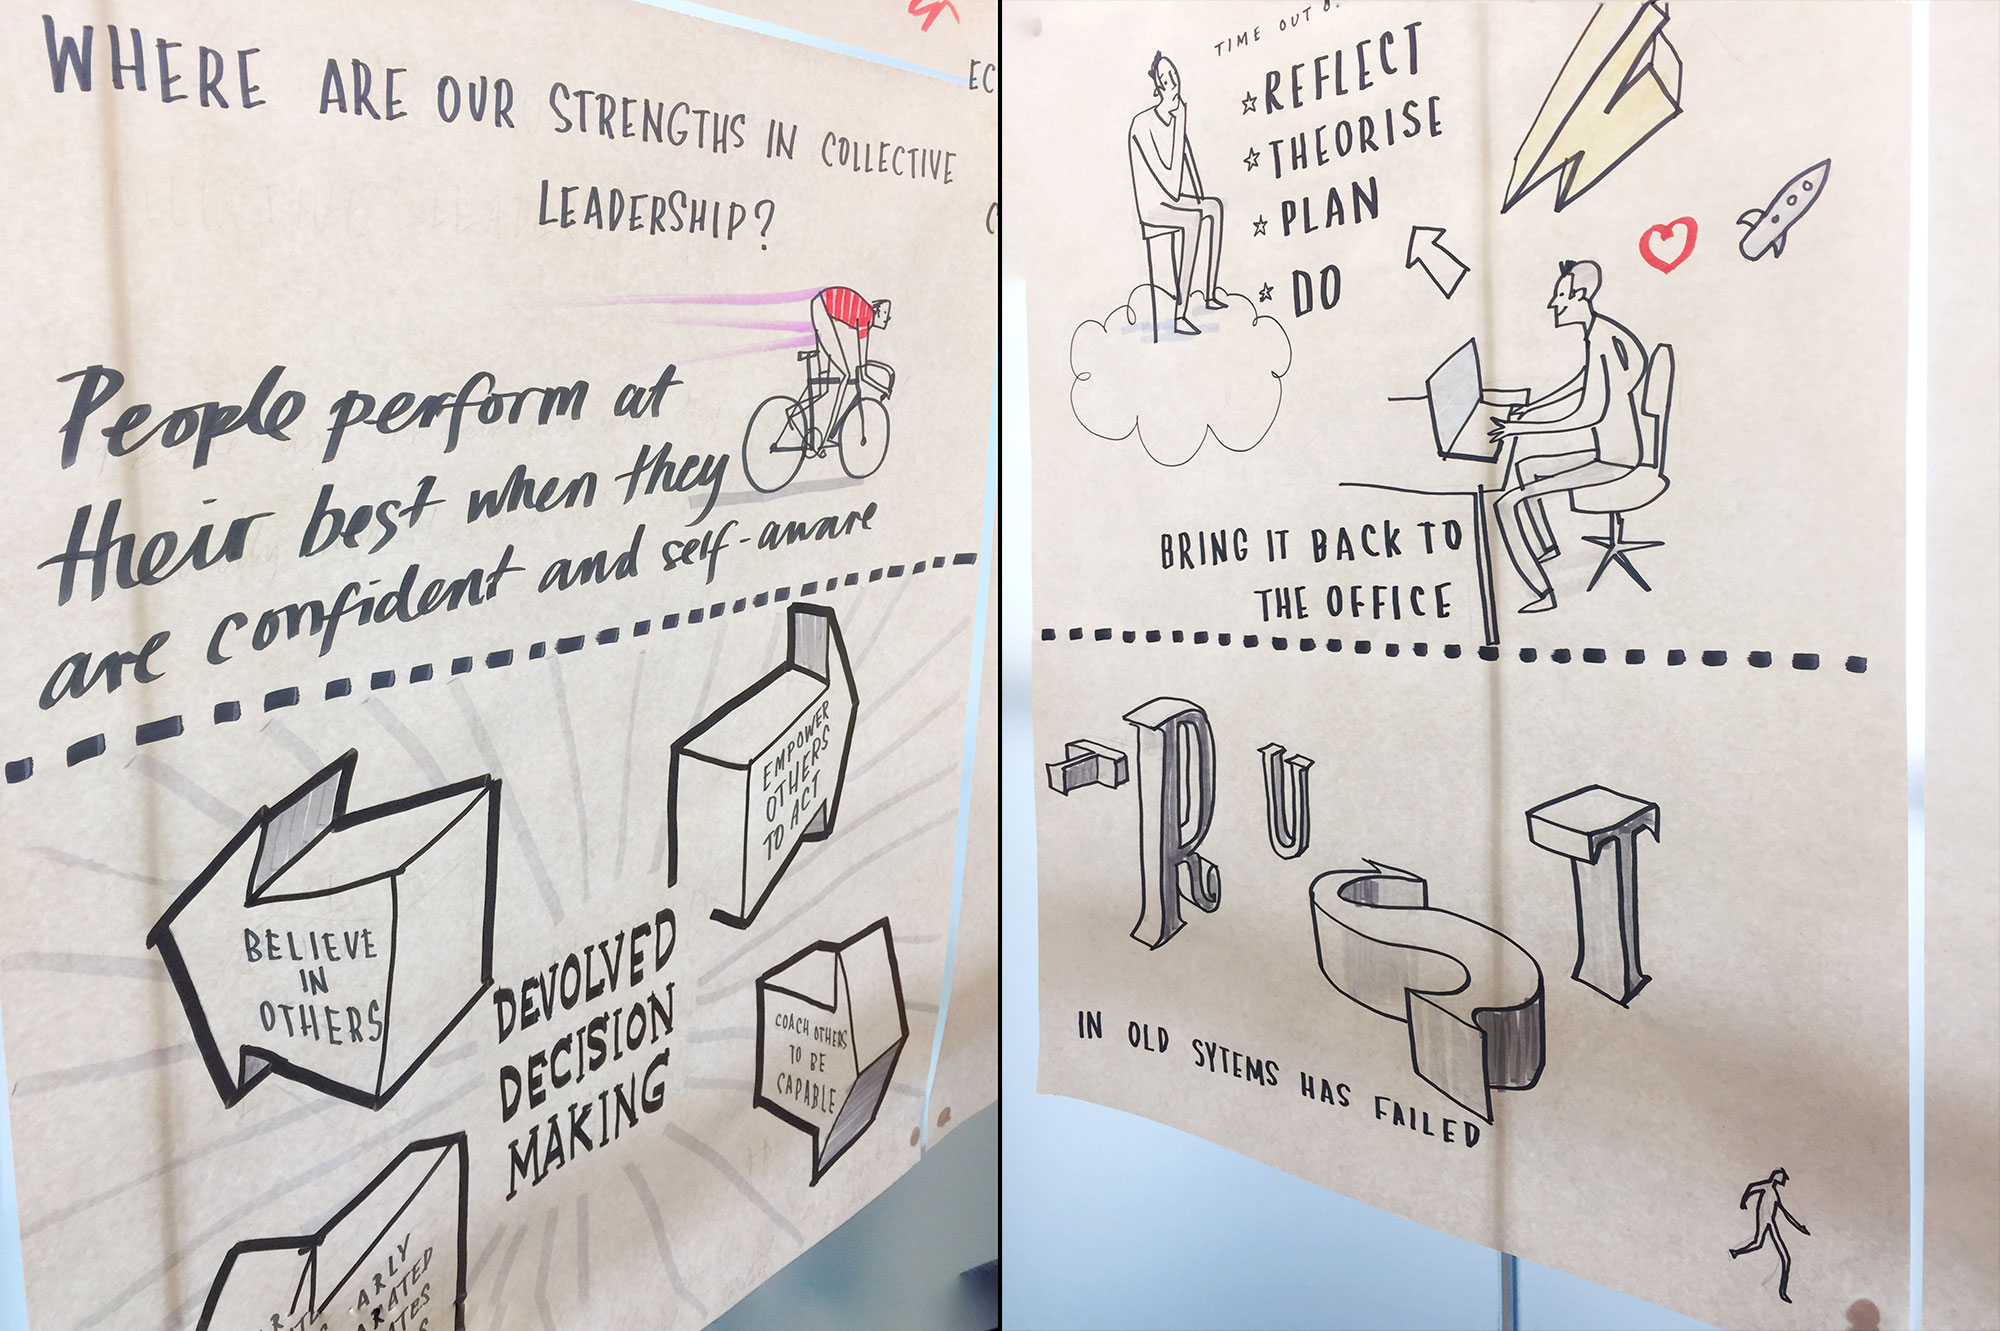 WHERE ARE OUR STRENGTHS IN COLLECTIVE
LEADERSHIP?
People perform at
their best when they
are confident and self-aware
BELIEVE
IN
OTHERS
EMPOWER
OTHERS
TO ACT
DEVOLVED
DECISION
MAKING
COACH OTHERS
TO BE
CAPABLE
TIME OUT
REFLECT
THEORISE
PLAN
DO
BRING IT BACK TO
THE OFFICE
TRUST
IN OLD SYTEMS HAS FAILED